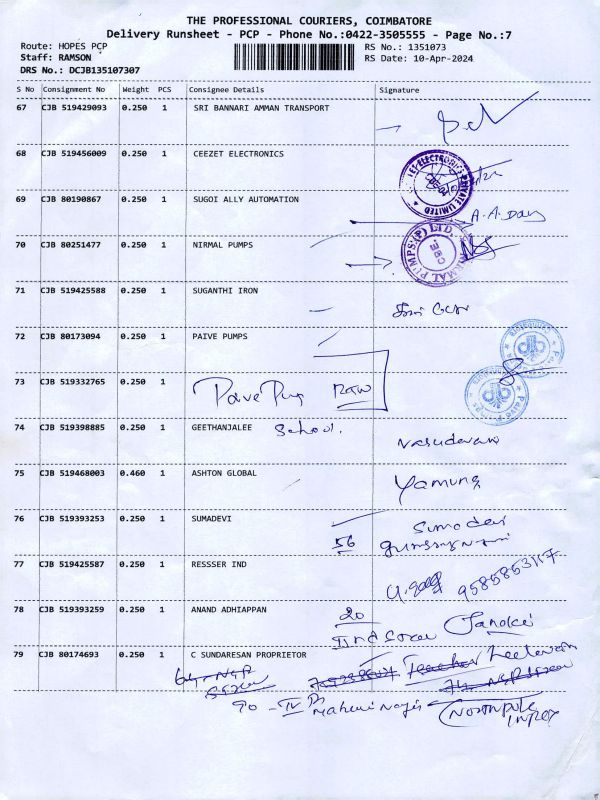 THE PROFESSIONAL COURIERS, COIMBATORE
Delivery Runsheet - PCP - Phone No.:0422-3505555 - Page No.:7
Route: HOPES PCP
RS No.: 1351073
Staff: RAMSON
RS Date: 10-Apr-2024
DRS No.: DCJB135107307
S No Consignment No Weight PCS Consignee Details Signature
67 CJB 519429093 0.250 1 SRI BANNARI AMMAN TRANSPORT
68 CJB 519456009 0.250 1 CEEZET ELECTRONICS
69 CJB 80190867 0.250 1 SUGOI ALLY AUTOMATION
A.A.Day
70 CJB 80251477 0.250 1 NIRMAL PUMPS
71 CJB 519425588 0.250 1 SUGANTHI IRON
72 CJB 80173094 0.250 1 PAIVE PUMPS
73 CJB 519332765 0.250 1
74 CJB 519398885 0.250 1 GEETHANJALEE School.
Vasudevan
75 CJB 519468003 0.460 1 ASHTON GLOBAL
Yamuna
76 CJB 519393253 0.250 1 SUMADEVI
Sumadevi
56
77 CJB 519425587 0.250 1 RESSSER IND
9585853117
78 CJB 519393259 0.250 1 ANAND ADHIAPPAN 20
Janaki
79 CJB 80174693 0.250 1 C SUNDARESAN PROPRIETOR
90 - IV